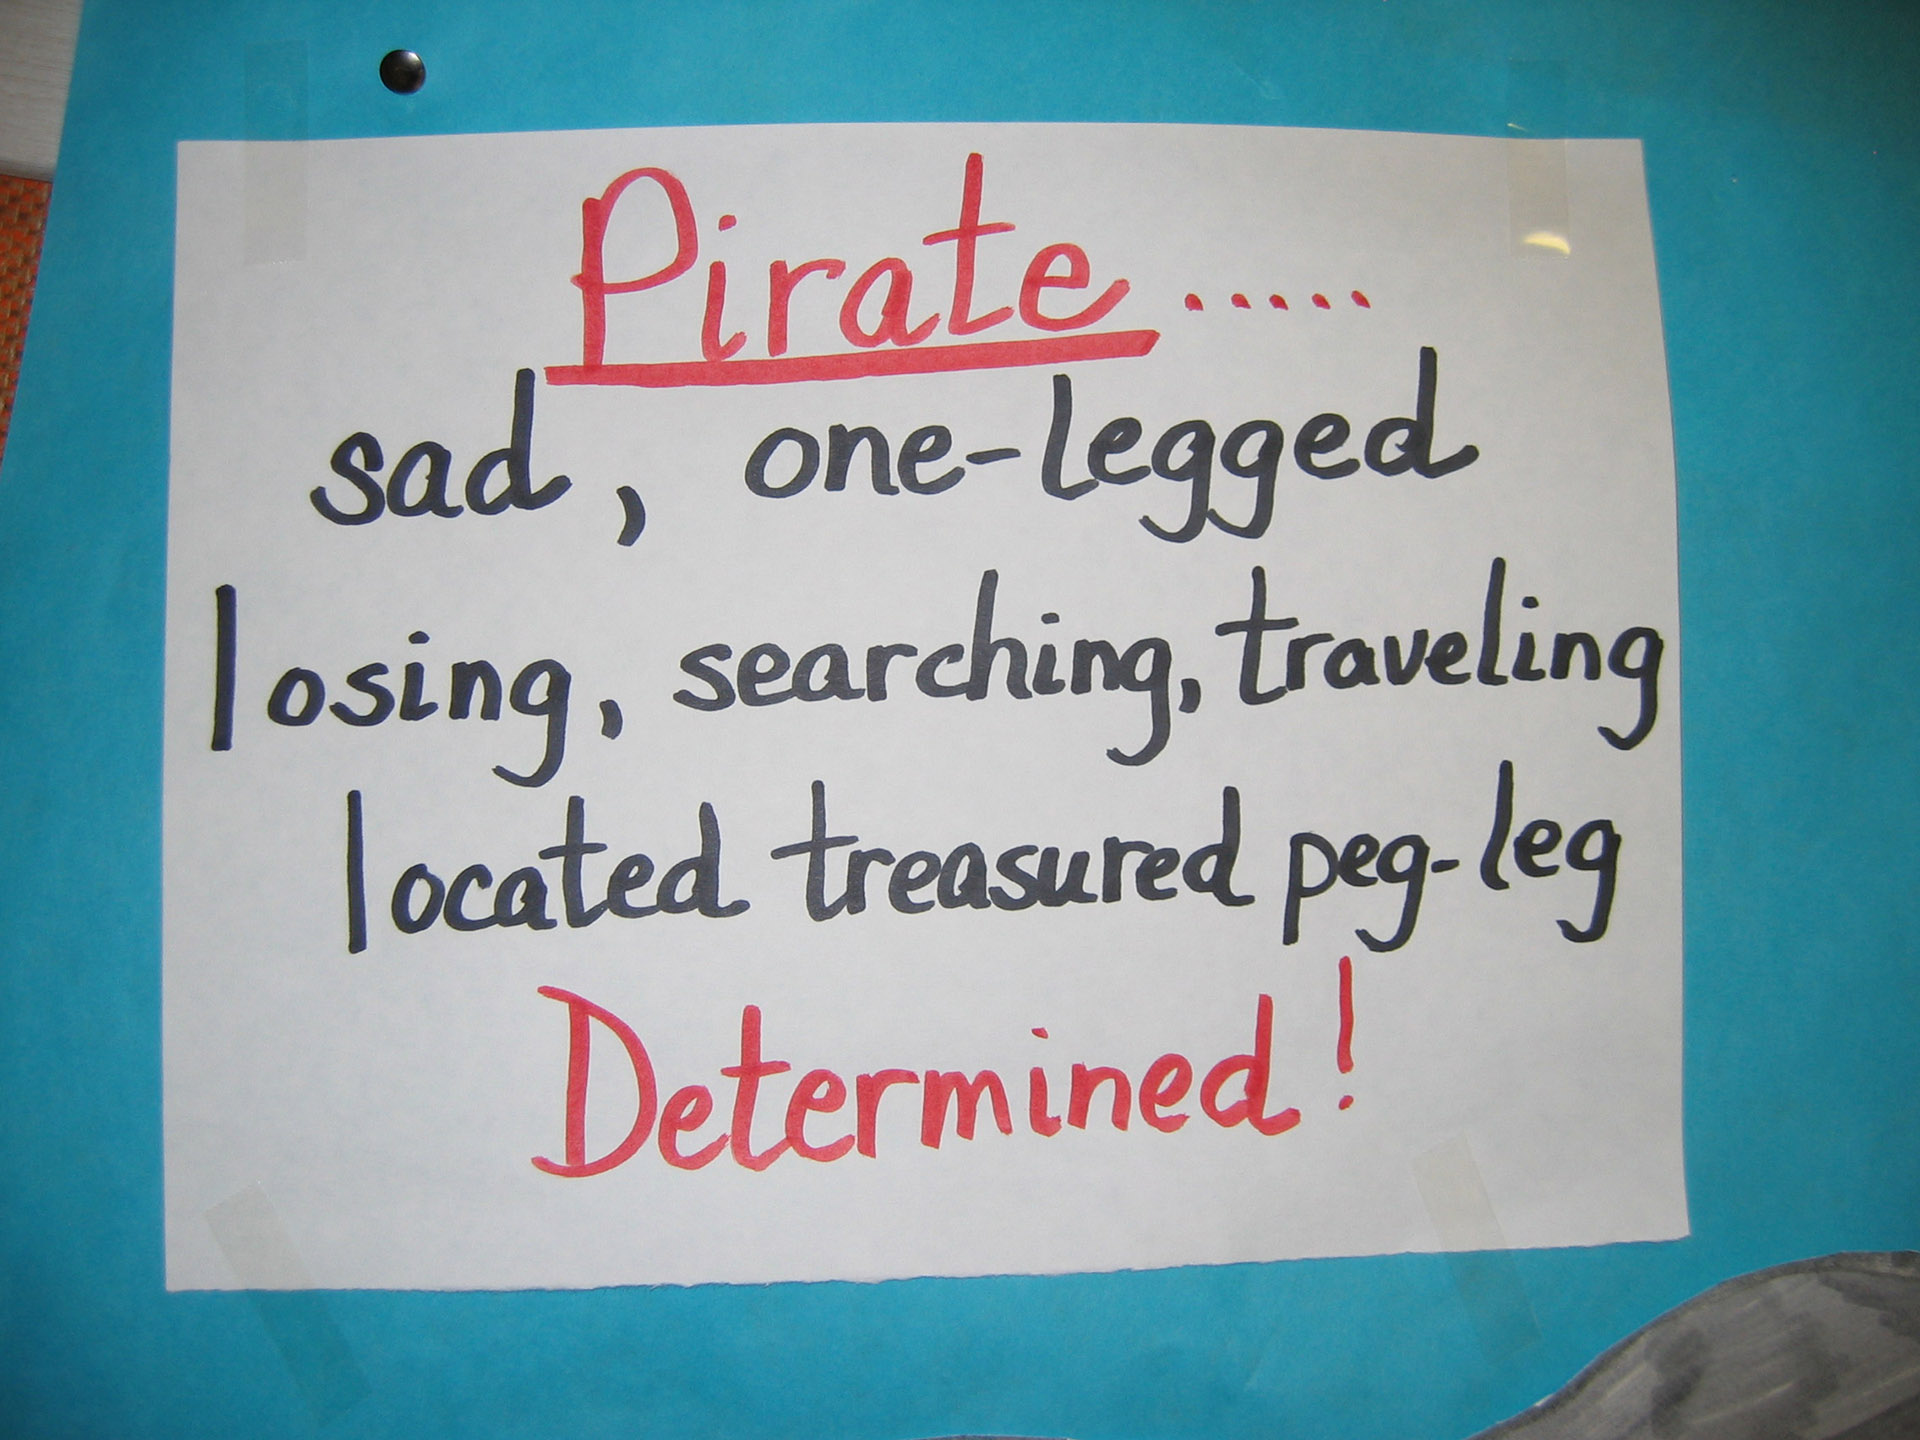 Pirate.....
sad, one-legged
losing, searching, traveling
located treasured peg-leg
Determined!